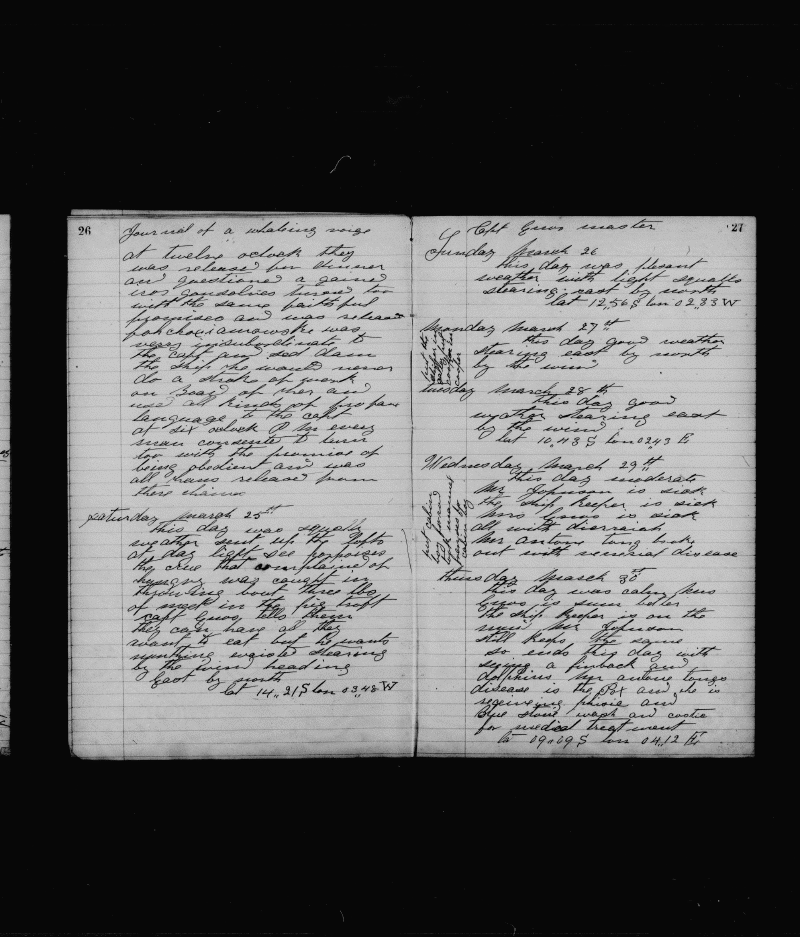 26
Journal of a whaleing voige
at twelve oclock they
was released for dinner
and questioned a gaine
turned too
with the same faithful
promises and was released
was
verry insubordinate to
the capt and sed dam
the ship he would never
do a stroke of work
on Board of her and
use all kinds of profane
language to the capt
at six oclock P M every
man consented to turn
too with the promise of
being obedient and was
all hans released from
there
saturday march 25th
this day was squally
weather sent up the
at day light see porposes
the crue that complained of
hungry was caught in
throwing bout three lbs
of meat in the
capt Enos tells them
they can have all they
want to eat but he wants
nothing stearing
by the wind heading
East by north
lat 14,,21 S lon 03,,48 W
Capt Enos master
27
Sunday March 26
this day was plesant
weather with light squalls
stearing east by north
lat 12,,56 S lon 02,,33 W
Monday March 27th
this day good weather
stearing east by north
by the wind
tuesday March 28th
this day good
weather stearing east
by the wind
lat 10,,48 S lon 02,,43 E
Wednesday March 29th
this day moderate
Mr Johnson is sick
the ship keeper is sick
Mrs Enos is sick
all with
Mr antone
out with disease
thursday March 30th
this day was calm Mrs
Enos is sum better
the ship keeper is on the
mend Mr Johnson
still keeps the same
so ends this day with
seeing a finback and
dolphins Mr antone
disease is the Pox and he is
receiveing and
Blue stone wash and
for medcal treatment
lat 09,,09 S lon 04,,12 E